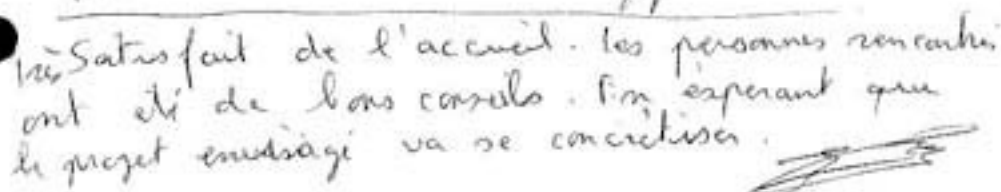 Très Satisfait de l'accueil. les personnes rencontrées
ont été de bons conseils. En espérant que
le projet envisagé va se concrétiser.